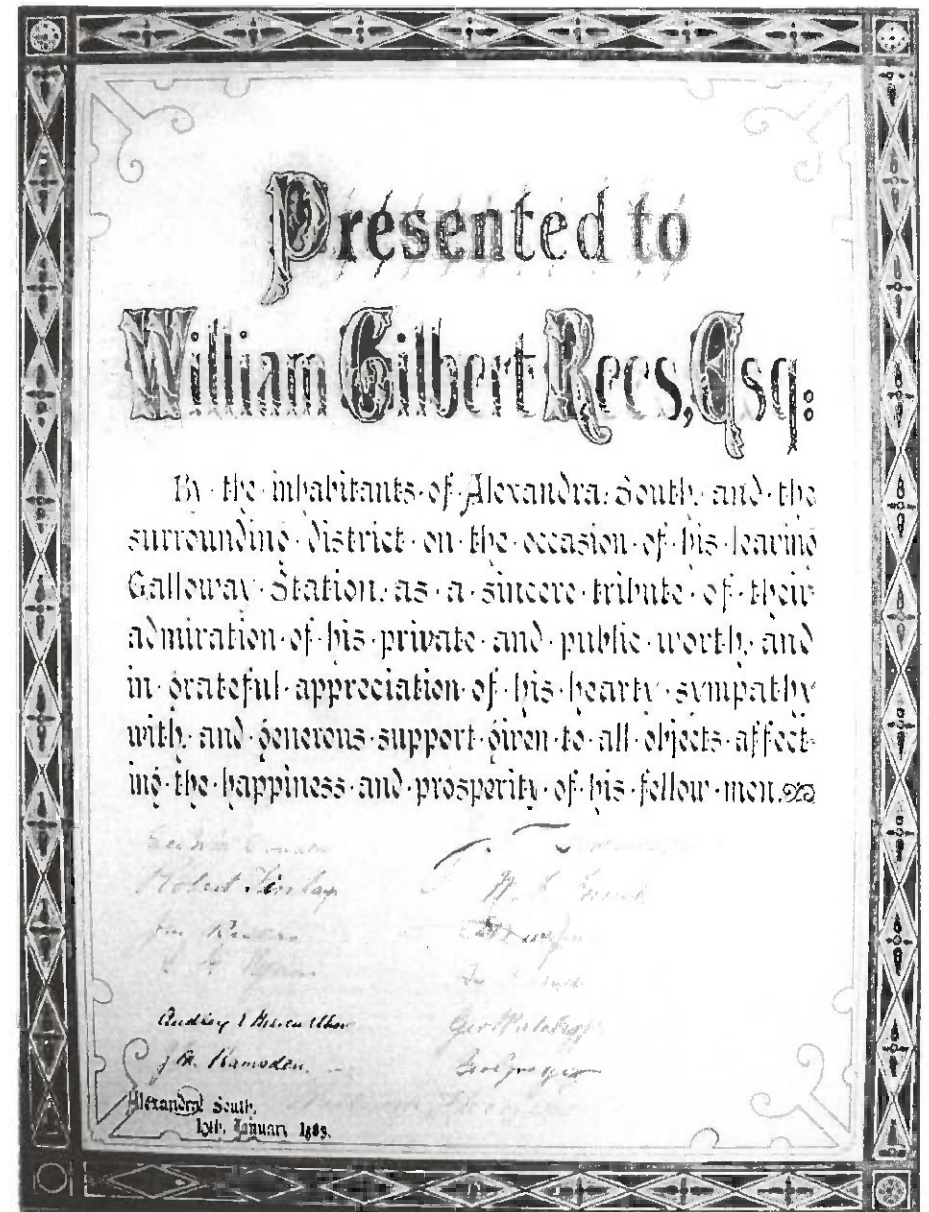 Presented to
William Gilbert Rees, Esq:
By the inhabitants of Alexandra South and the
surrounding district on the occasion of his leaving
Galloway Station, as a sincere tribute of their
admiration of his private and public worth, and
in grateful appreciation of his hearty sympathy
with, and generous support given to all objects affect-
ing the happiness and prosperity of his fellow men.
Robert Finlay
J. M. Ramsden.
Alexandra South,
January